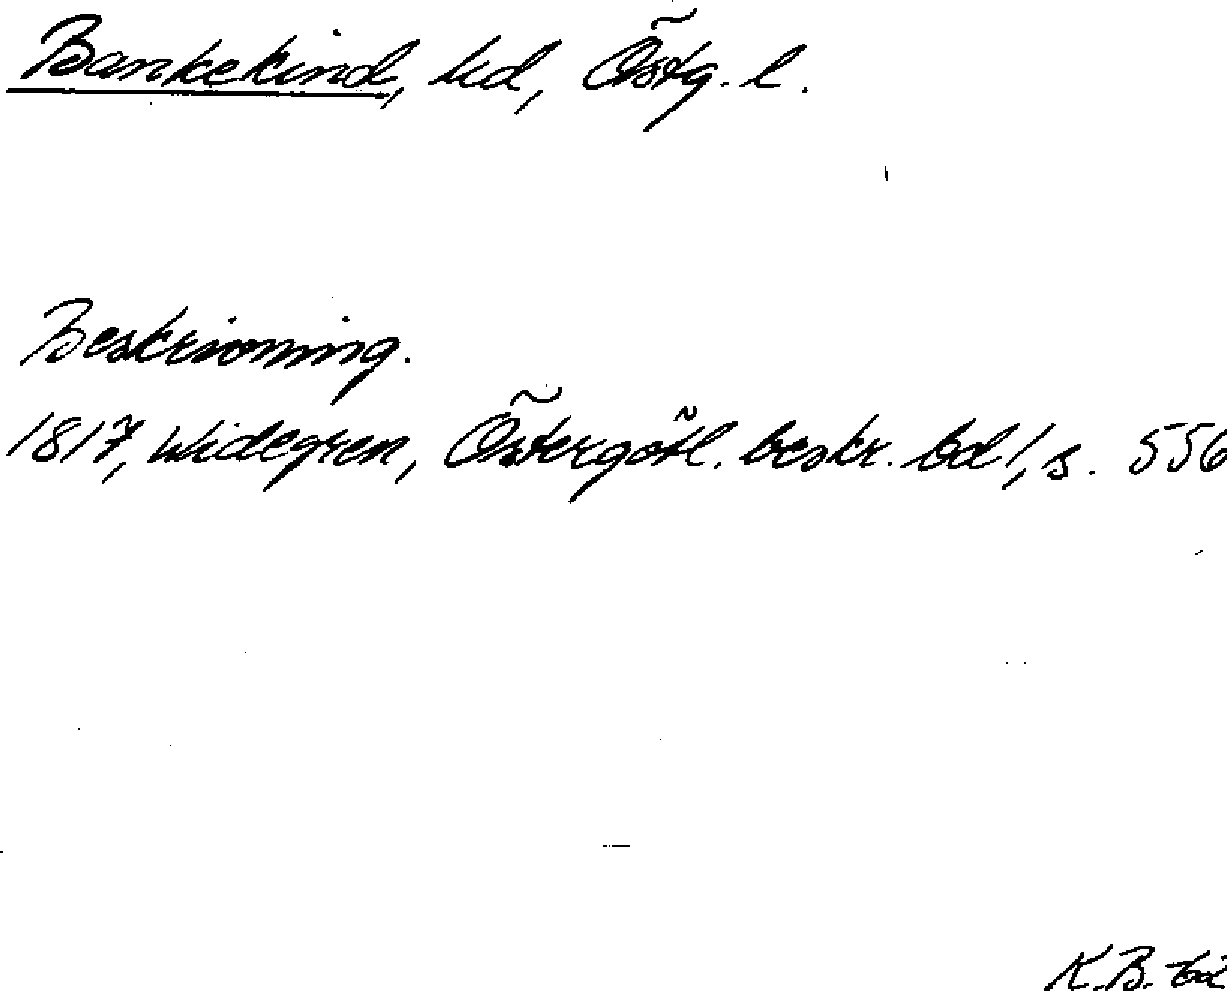 Bankekind, hd, Östg. l.
Beskrivning.
1817, Widegren, Östergötl. beskr. bd 1, s. 556
K.B.